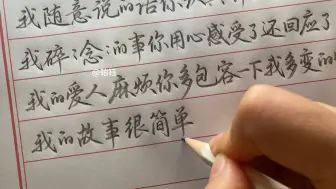 我随意说的话你认
我碎念的事你用心感受了还回应了
我的爱人麻烦你多包容一下我多变的
我的故事很简单